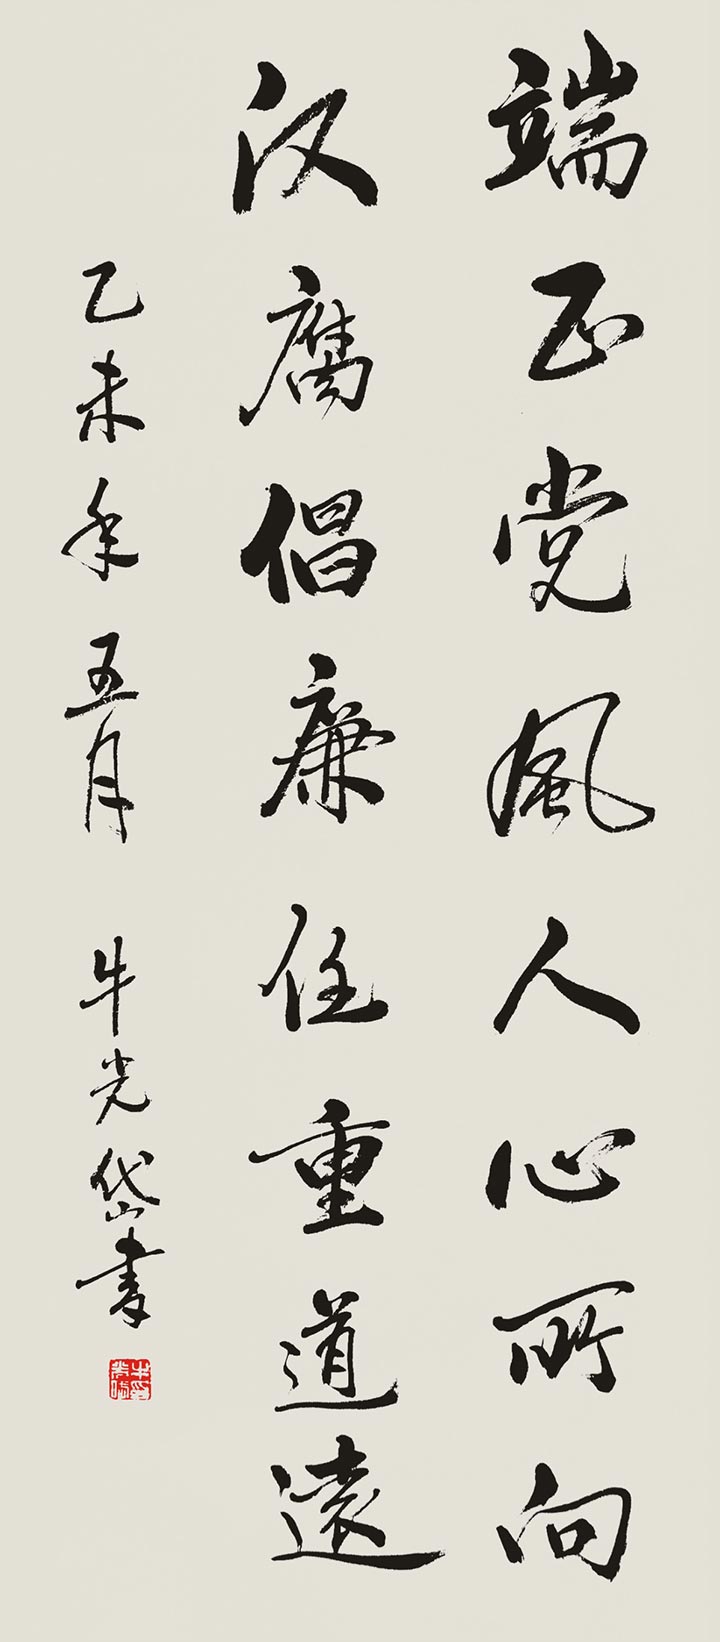 端正党風人心所向
反腐倡廉任重道遠
乙未年五月 牛光岱書